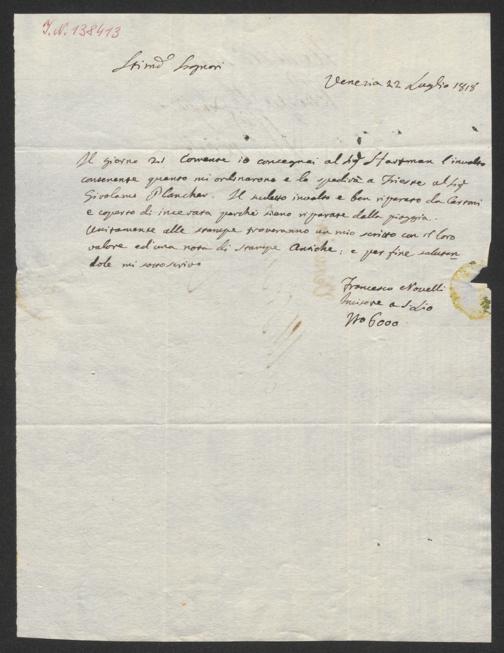 I.N. 138413
Stimd Signori
Venezia 22 Luglio 1818
Il giorno 21 Corrente io consegnai al Sig Hartman l'involto
contenente quanto mi ordinarono e lo spedirà a Trieste al Sig
Girolamo Plancher. Il sudetto involto e ben riparato da Cartoni
e coperto di incerata perchè siano riparate dalla pioggia.
Unitamente alle stampe troveranno un mio scritto con il loro
valore ed una nota di stampe Antiche; e per fine salutan
dole mi sottoscrivo
Francesco Novelli
Incisore a S Lio
No 6000